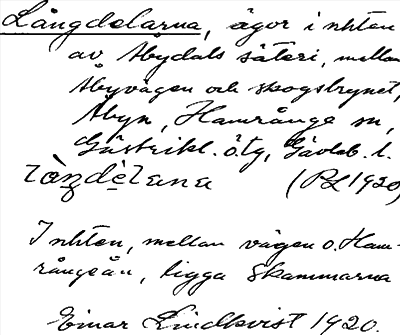 Långdelarna, ägor i nhten
av Åbydals säteri, mellan
Åbyvägen och skogsbrynet,
Åbyn, Hamrånge sn,
Gästrikl. ö. tg, Gävleb. l.
(PL 1920)
I nhten, mellan vägen o. Ham-
rångeån, ligga Skammarna
Einar Lindkvist 1920.